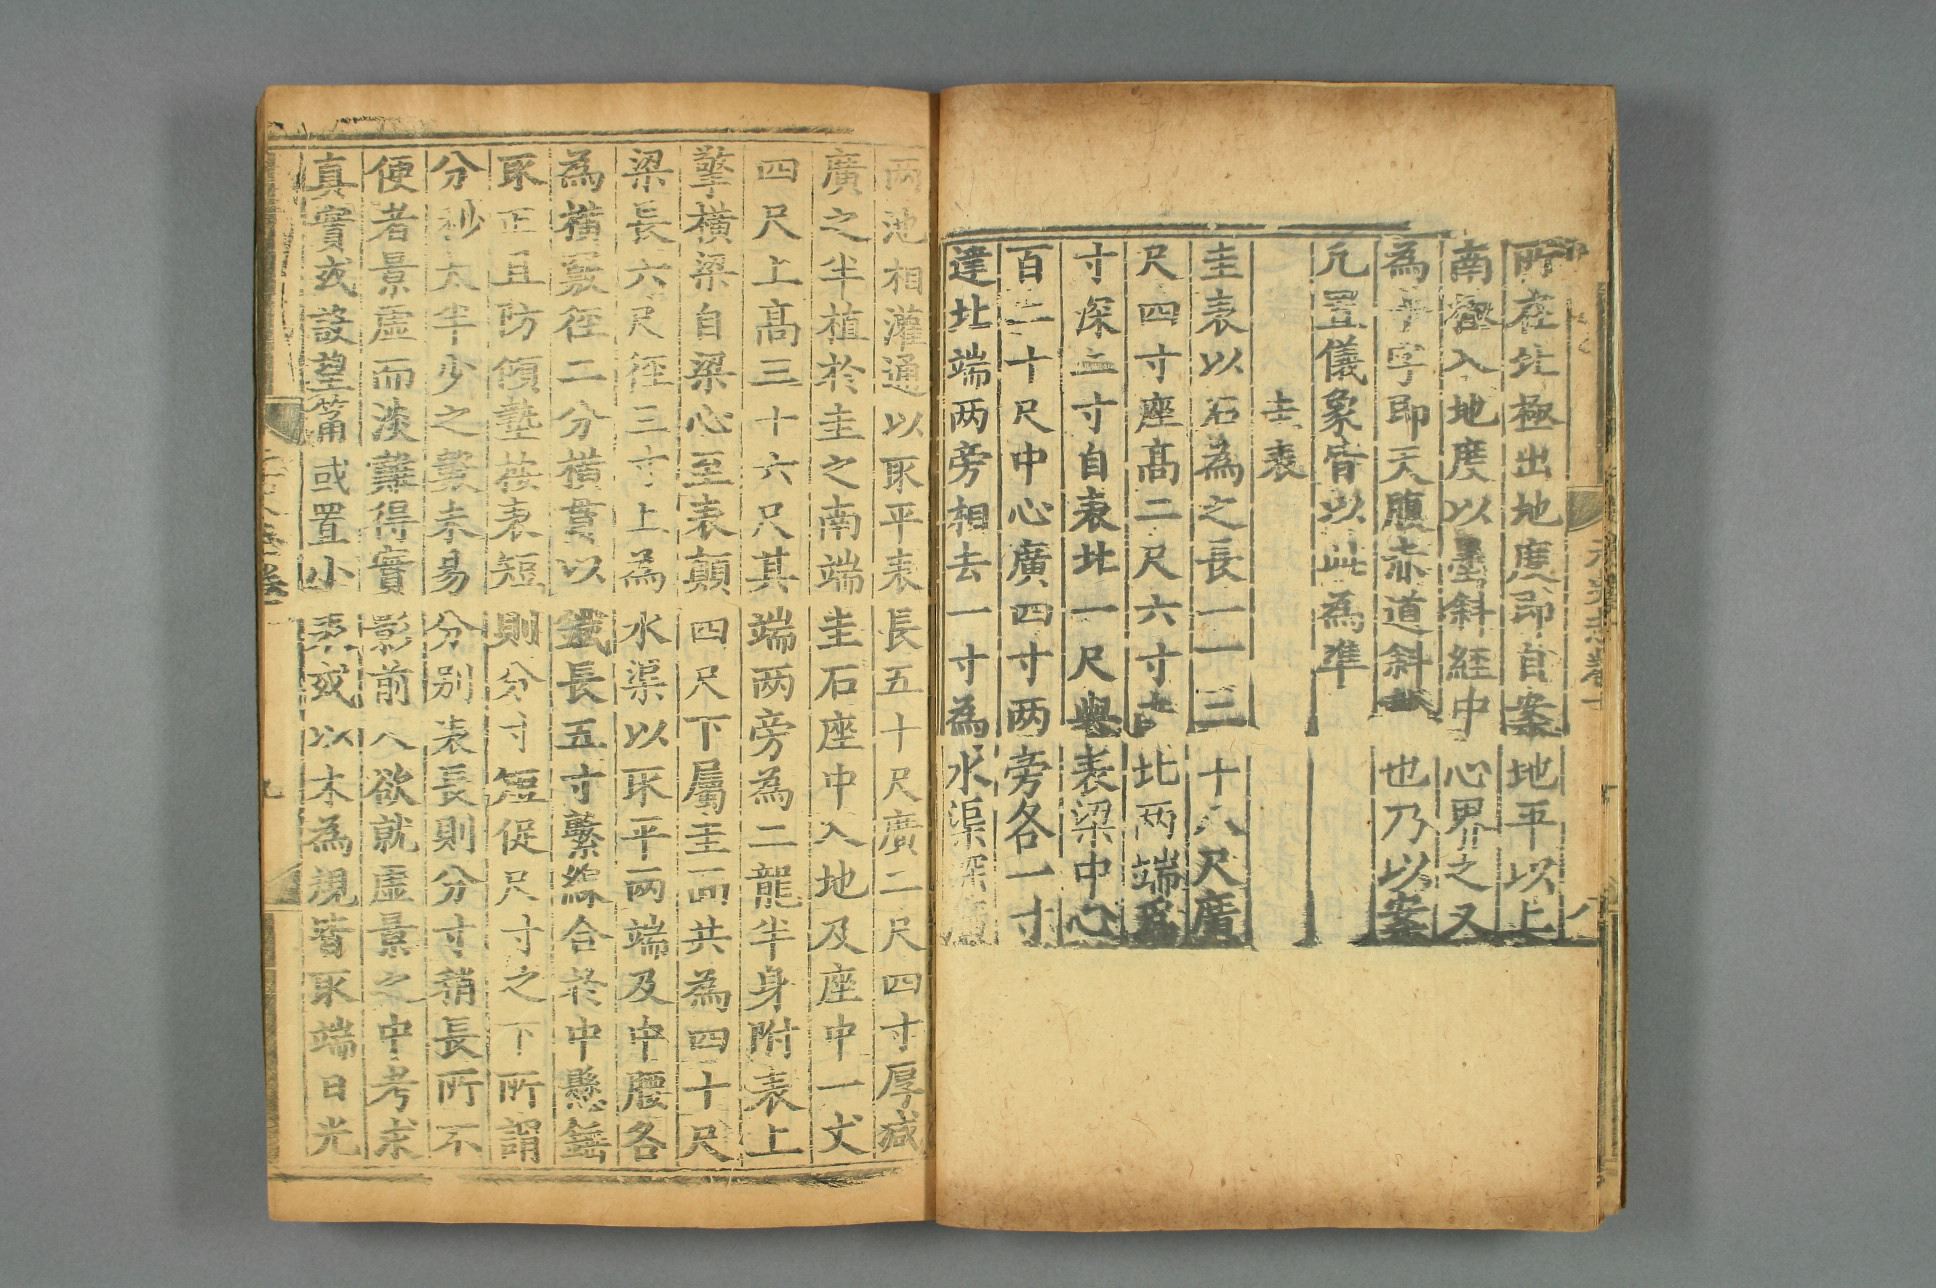 所在北極出地度即自案地平以上
南極入地度以墨斜経中心界之又
為十字即天腹赤道斜截也乃以案
凢置儀象皆以此為準
圭表
圭表以石為之長一百二十八尺廣
尺四寸座髙二尺六寸南北两端爲
寸深二寸自表北一尺與表梁中心
百二十尺中心廣四寸两旁各一寸
逹北端两旁相去一寸為水渠深廣
两池相灌通以取平表長五十尺廣二尺四寸厚减
廣之半植於圭之南端圭石座中入地及座中一丈
四尺上髙三十六尺其端两旁為二龍半身附表上
擎横梁自梁心至表顛四尺下屬圭面共為四十尺
梁長六尺徑三寸上為水渠以取平两端及中腰各
為横竅徑二分横貫以鐵長五寸繫線合於中懸錘
取正且防傾墊按表短則分寸短促尺寸之下所謂
分秒太半少之數未易分別表長則分寸稍長所不
便者景虛而淡難得實影前人欲就虛景之中考求
真實或設望筩或置小表或以木為規皆取端日光
九